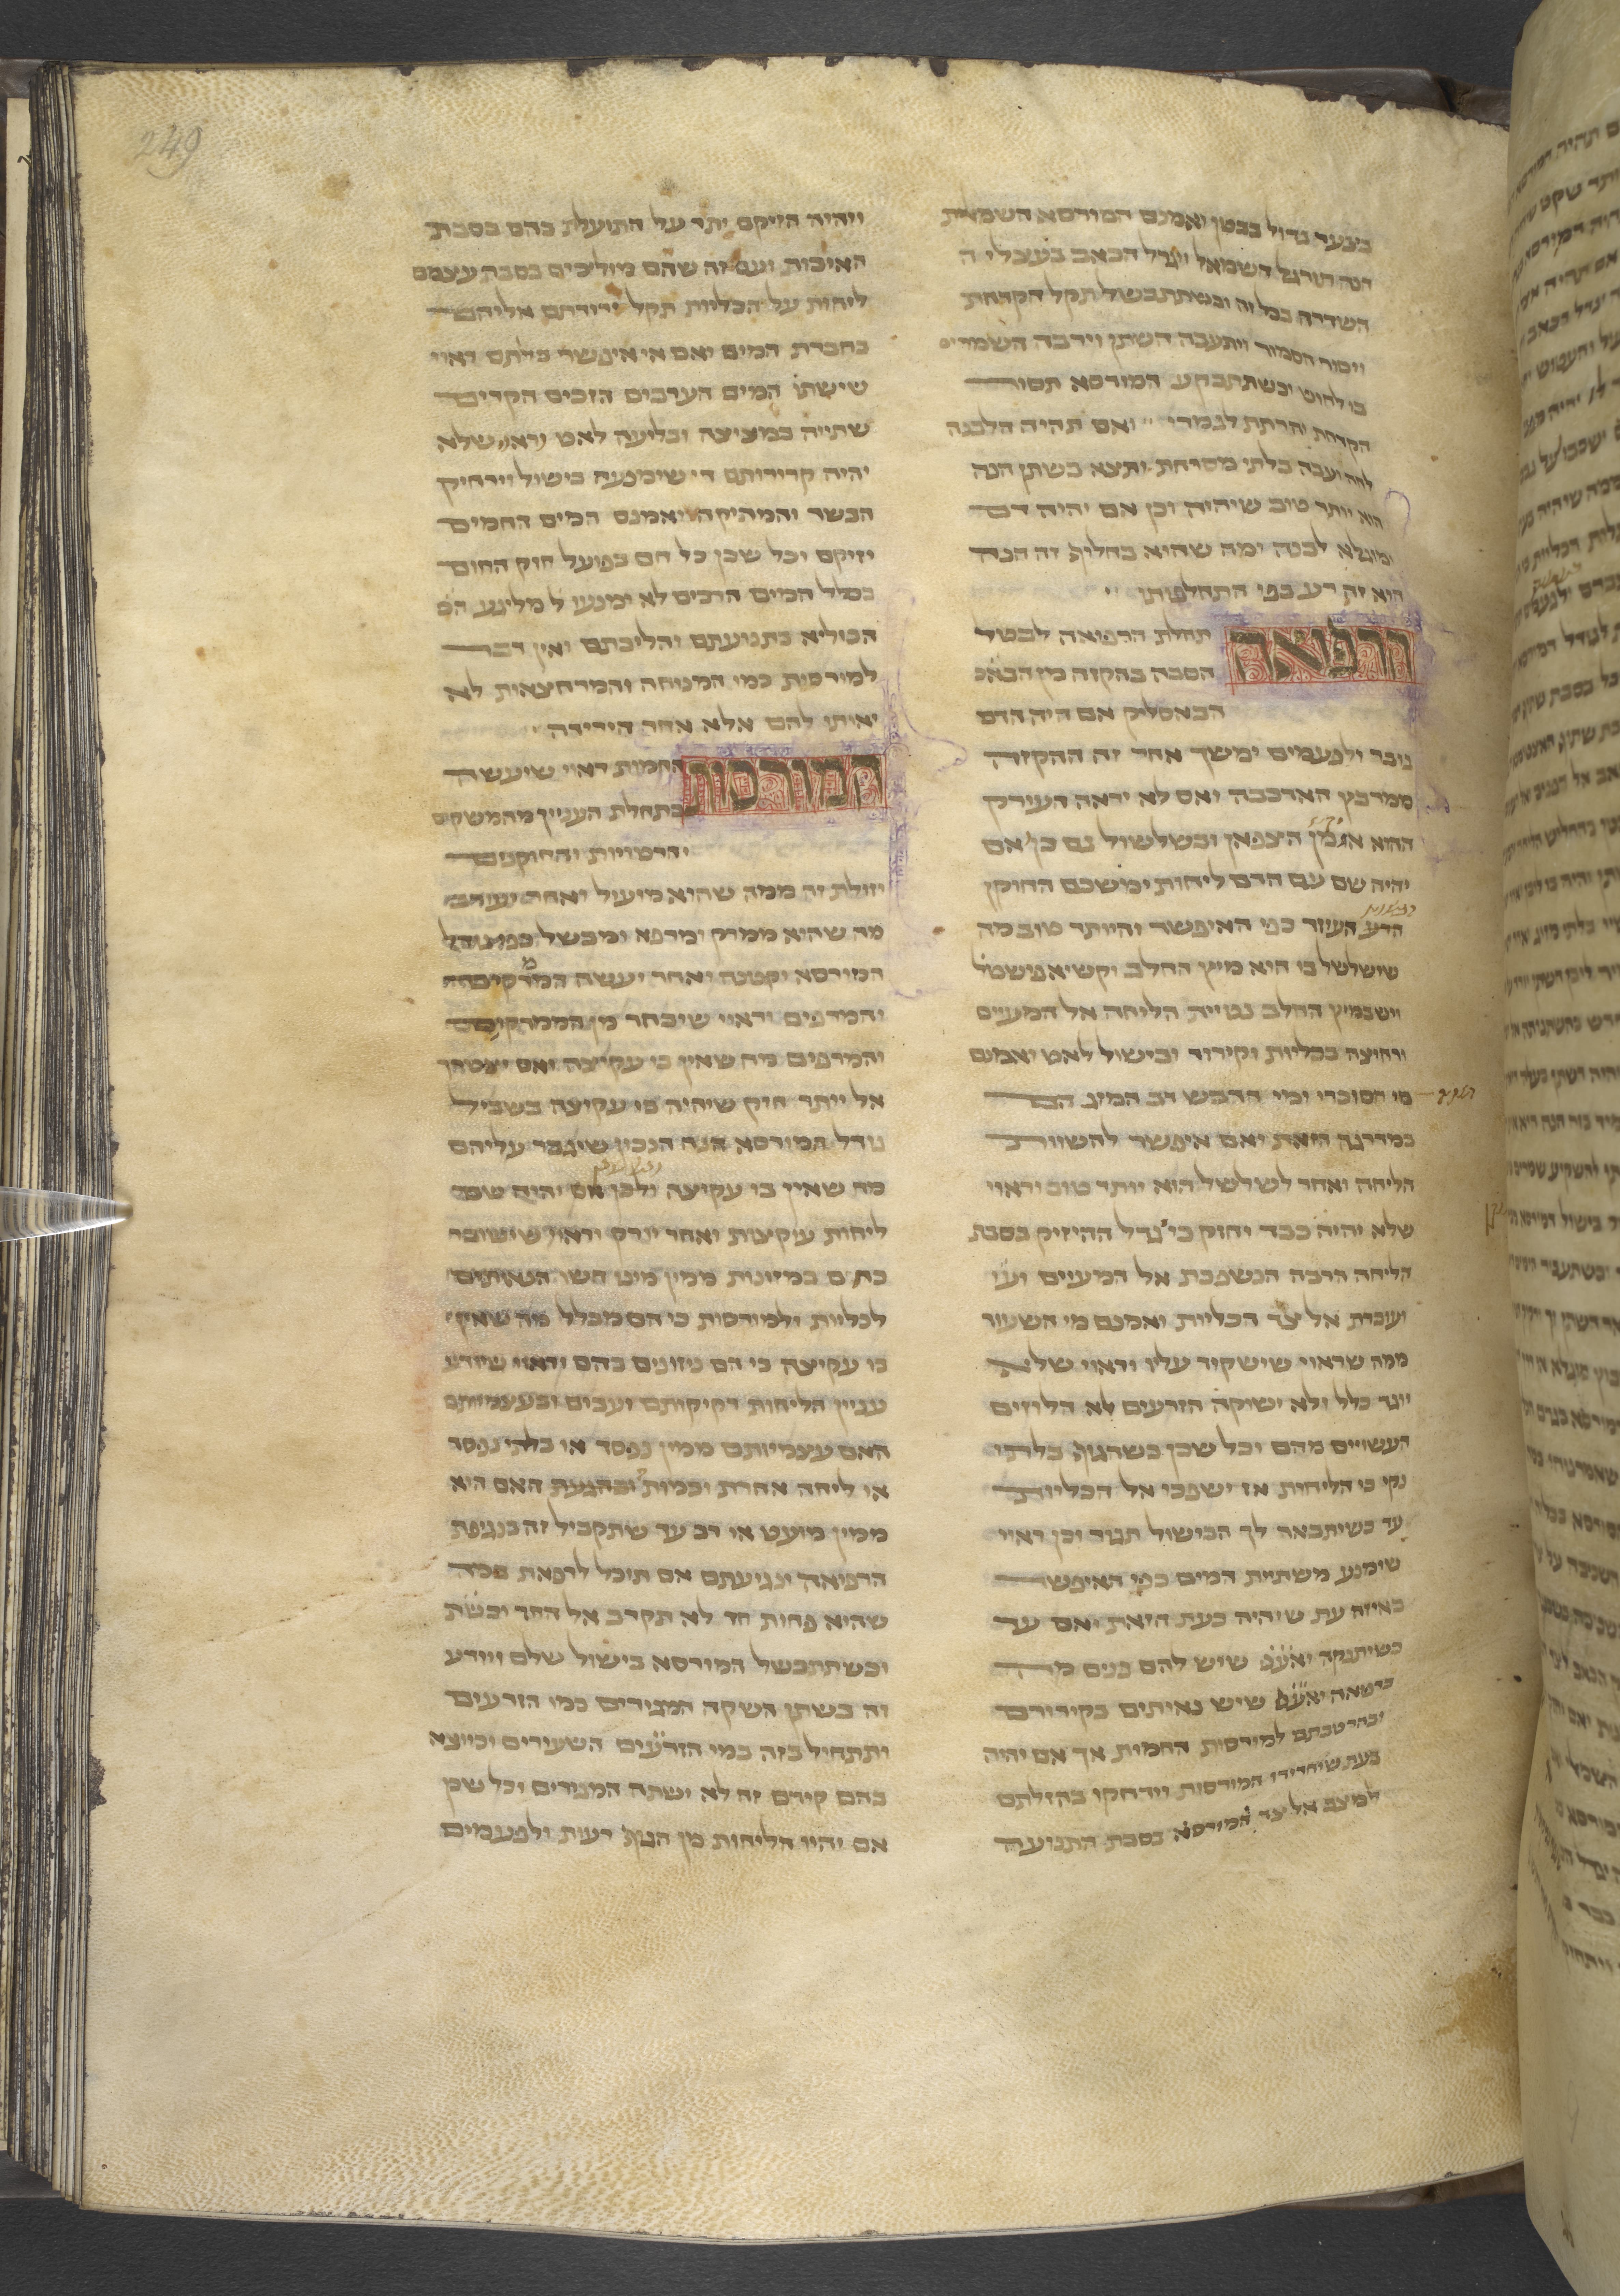 249
בצער גדול בבטן ואמנם המורסא השמאלית
הנה תורגש השמאל ויגדל הכאב בעצלי ה
השדרה בכל זה וכשתתבשל תקל הקדחת
ויסור הסמור ויתעבה השתן וירבה השמרים
בו לחוט וכשתתבקע המורסא תסור
הקדחת והרתת לגמרי ואם תהיה הלבנה
לחה ועבה בלתי מסרחת ותצא בשתן הנה
הוא יותר טוב שיהיה וכן אם יהיה דם
ומוגלא לבנה ומה שהוא בחליף זה הנה
הוא זה רע בפי התחלפותו
הרפואה תחלת הרפואה לבטל
הסבה בהקזה מן הבאס
הבאסליק אם היה הדם
גובר ולפעמים ימשך אחר זה ההקזה
ממרבץ הארכבה ואם לא יראה העירק
ההוא אז מן הצפאן ובשלשול גם כן אם
יהיה שם עם הדם ליחות ימשכם החוקן
הרע העוזר כפי האיפשר והיותר טוב מה
שישלשל בו הוא מיץ החלב וקשיאפיסטל
ויש במיץ החלב נטיית הליחה אל המעיים
ורחיצה בכליות וקירור ובישול לאט ואמנם
מי הסוכרי ומי הדבש רב המזג הם
במדרגה הזאת ואם איפשר להשוות
הליחה ואחר לשלשל הוא יותר טוב וראוי
שלא יהיה כבד וחזק כי יגדל ההיזק בסבת
הליחה הרבה הנשפכת אל המעיים ועו
ועוברת אל צד הכליות ואמנם מי השעור
ממה שראוי שישקוד עליו וראוי שלא
יוגר כלל ולא ישוקה הזרעים לא הלוזים
העשויים מהם וכל שכן בשהגוף בלתי
נקי כי הליחות אז ישפכו אל הכליות
עד כשיתבאר לך הבישול תגיר וכן ראוי
שימנע משתיית המים כפי האיפשר
באיזה עת שיהיה בעת הזאת ואם עד
כשיתנקה ואעפ שיש להם פנים מה
כרפואה ואעפ שיש נאותים בקירורם
ובהרטבתם למורסות החמות אך אם יהיה
בעת שיורידו המורסות וידחקו בהזלתם
למצב אל צד המורסא בסבת התנועה
ויהיה הזיקם יתר על התועלת בהם בסבת
האיכות ועם זה שהם מוליכים בסבת עצמם
ליחות על הכליות תקל ירידתם אליהם
בחברת המים ואם אי איפשר בלתם ראוי
שישתו המים הערבים הזכים הקרים
שתייה במציצה ובליעה לאט לאט שלא
יהיה קרירותם די שימנעה בישול וירחיק
הבשר והמהיקה ואמנם המים החמים
יזיקם וכל שכן כל חם בפועל חזק החום
בכלל המים הרבים לא ימנעו ל מליגע הם
הכוליא בתנועתם והליכתם ואין דבר
למורסות כמו המנוחה והמרחצאות לא
יאותו להם אלא אחר הירידה
המורסות החמות ראוי שיעשה
בתחלת העניין מהמשקים
והרטיות והחוקנים
וזולת זה ממה שהוא מועיל ואחר יעורב
מה שהוא ממרק ומרפא ומבשל כפי גודל
המורסא וקטנה ואחר יעשה הממרקים
והמרפים וראוי שיבחר מן הממרקים
והמרפים מה שאין בו עקיצה ואם יצטרך
אל יותר חזק שיהיה בו עקיצה בשביל
גודל המורסא הנה הנכון שיגבר עליהם
מה שאין בו עקיצה ולכן אם יהיה שם
ליחות עוקצות ואחר יורק וראוי שישוככו
כחם במזונות ממין מיטב חשה הנאותים
לכליות ולמורסות כי הם מכלל מה שאין
בו עקיצה כי הם ניזונים בהם וראוי שיודע
עניין הליחות דקיקותם ועבים ובעצמותם
האם עצמיותם ממין נפסד או בלתי נפסד
או ליחה אחרת וכמות ובהגעת האם היא
ממין מועט או רב עד שתקביל זה בנגיפת
הרפואה וגניעתם אם תוכל לרפאת במה
שהיא פחות חד לא תקרב אל החד וכשת
וכשתתבשל המורסא בישול שלם ויודע
זה בשתן השקה המגירים כמו הזרעים
ותתחיל בזה במי הזרעים השעורים וכיוצא
בהם קודם זה לא ישתה המגירים וכל שכן
אם יהיו הליחות מן הגוף רעות ולפעמים